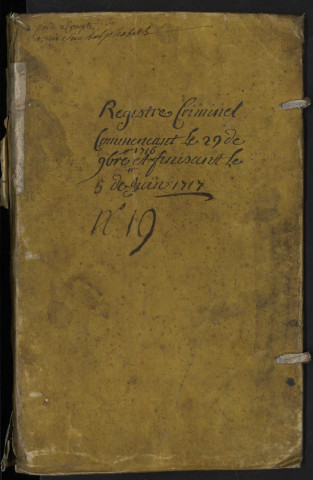 Registre Criminel
Commencant le 29 de
1716
9bre et finisant le
5 de Juin 1717
N° 19